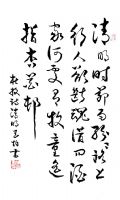 清明时节雨纷纷路上
行人欲断魂借问酒
家何处有牧童遥
指杏花村
杜牧诗清明